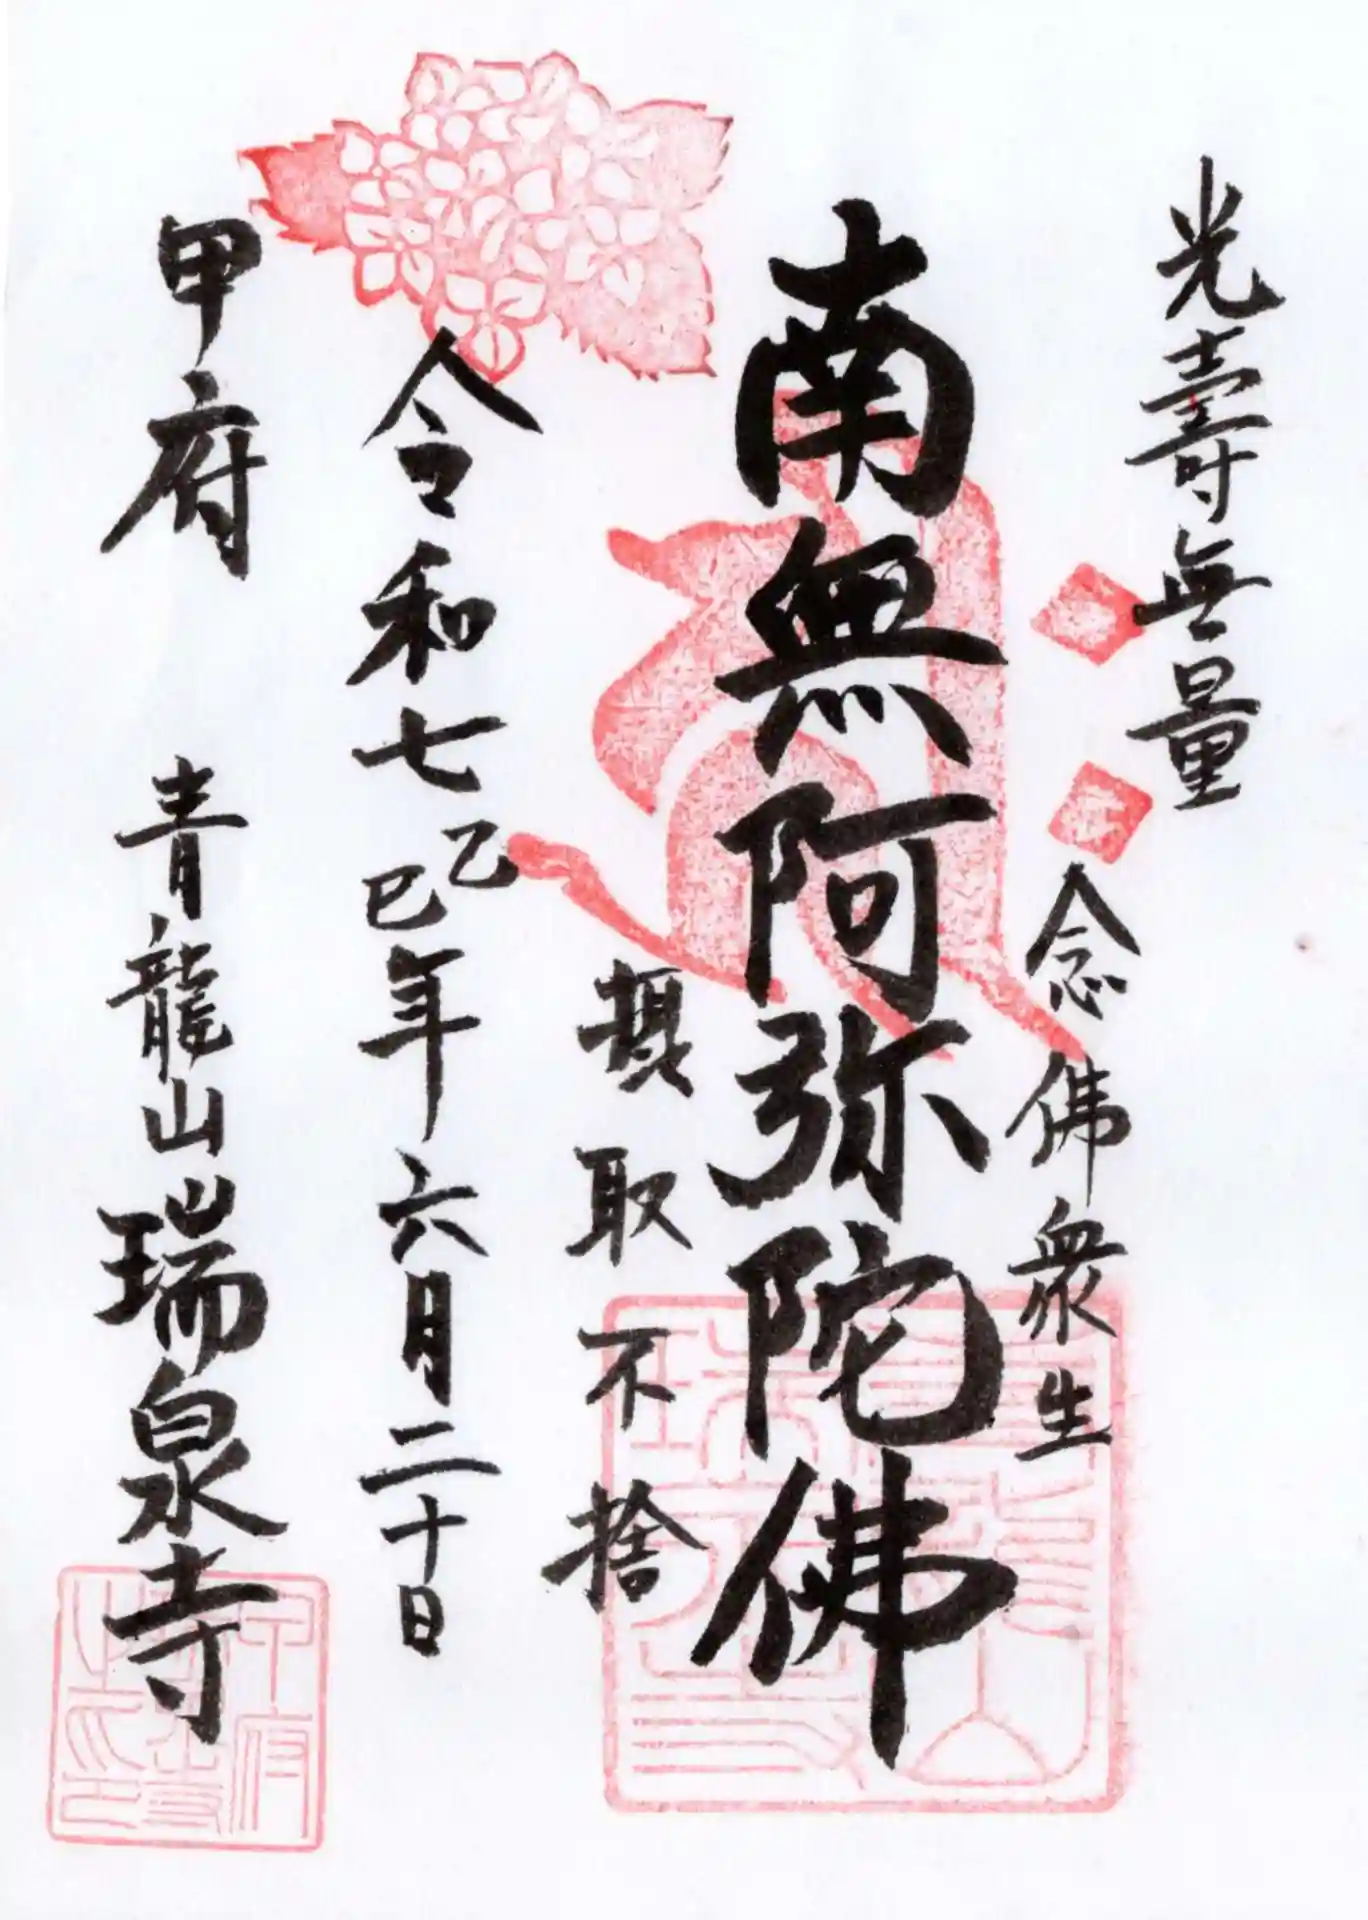 光壽無量
念佛衆生
南無阿弥陀佛
摂取不捨
令和七乙巳年六月二十日
甲府 青龍山瑞泉寺